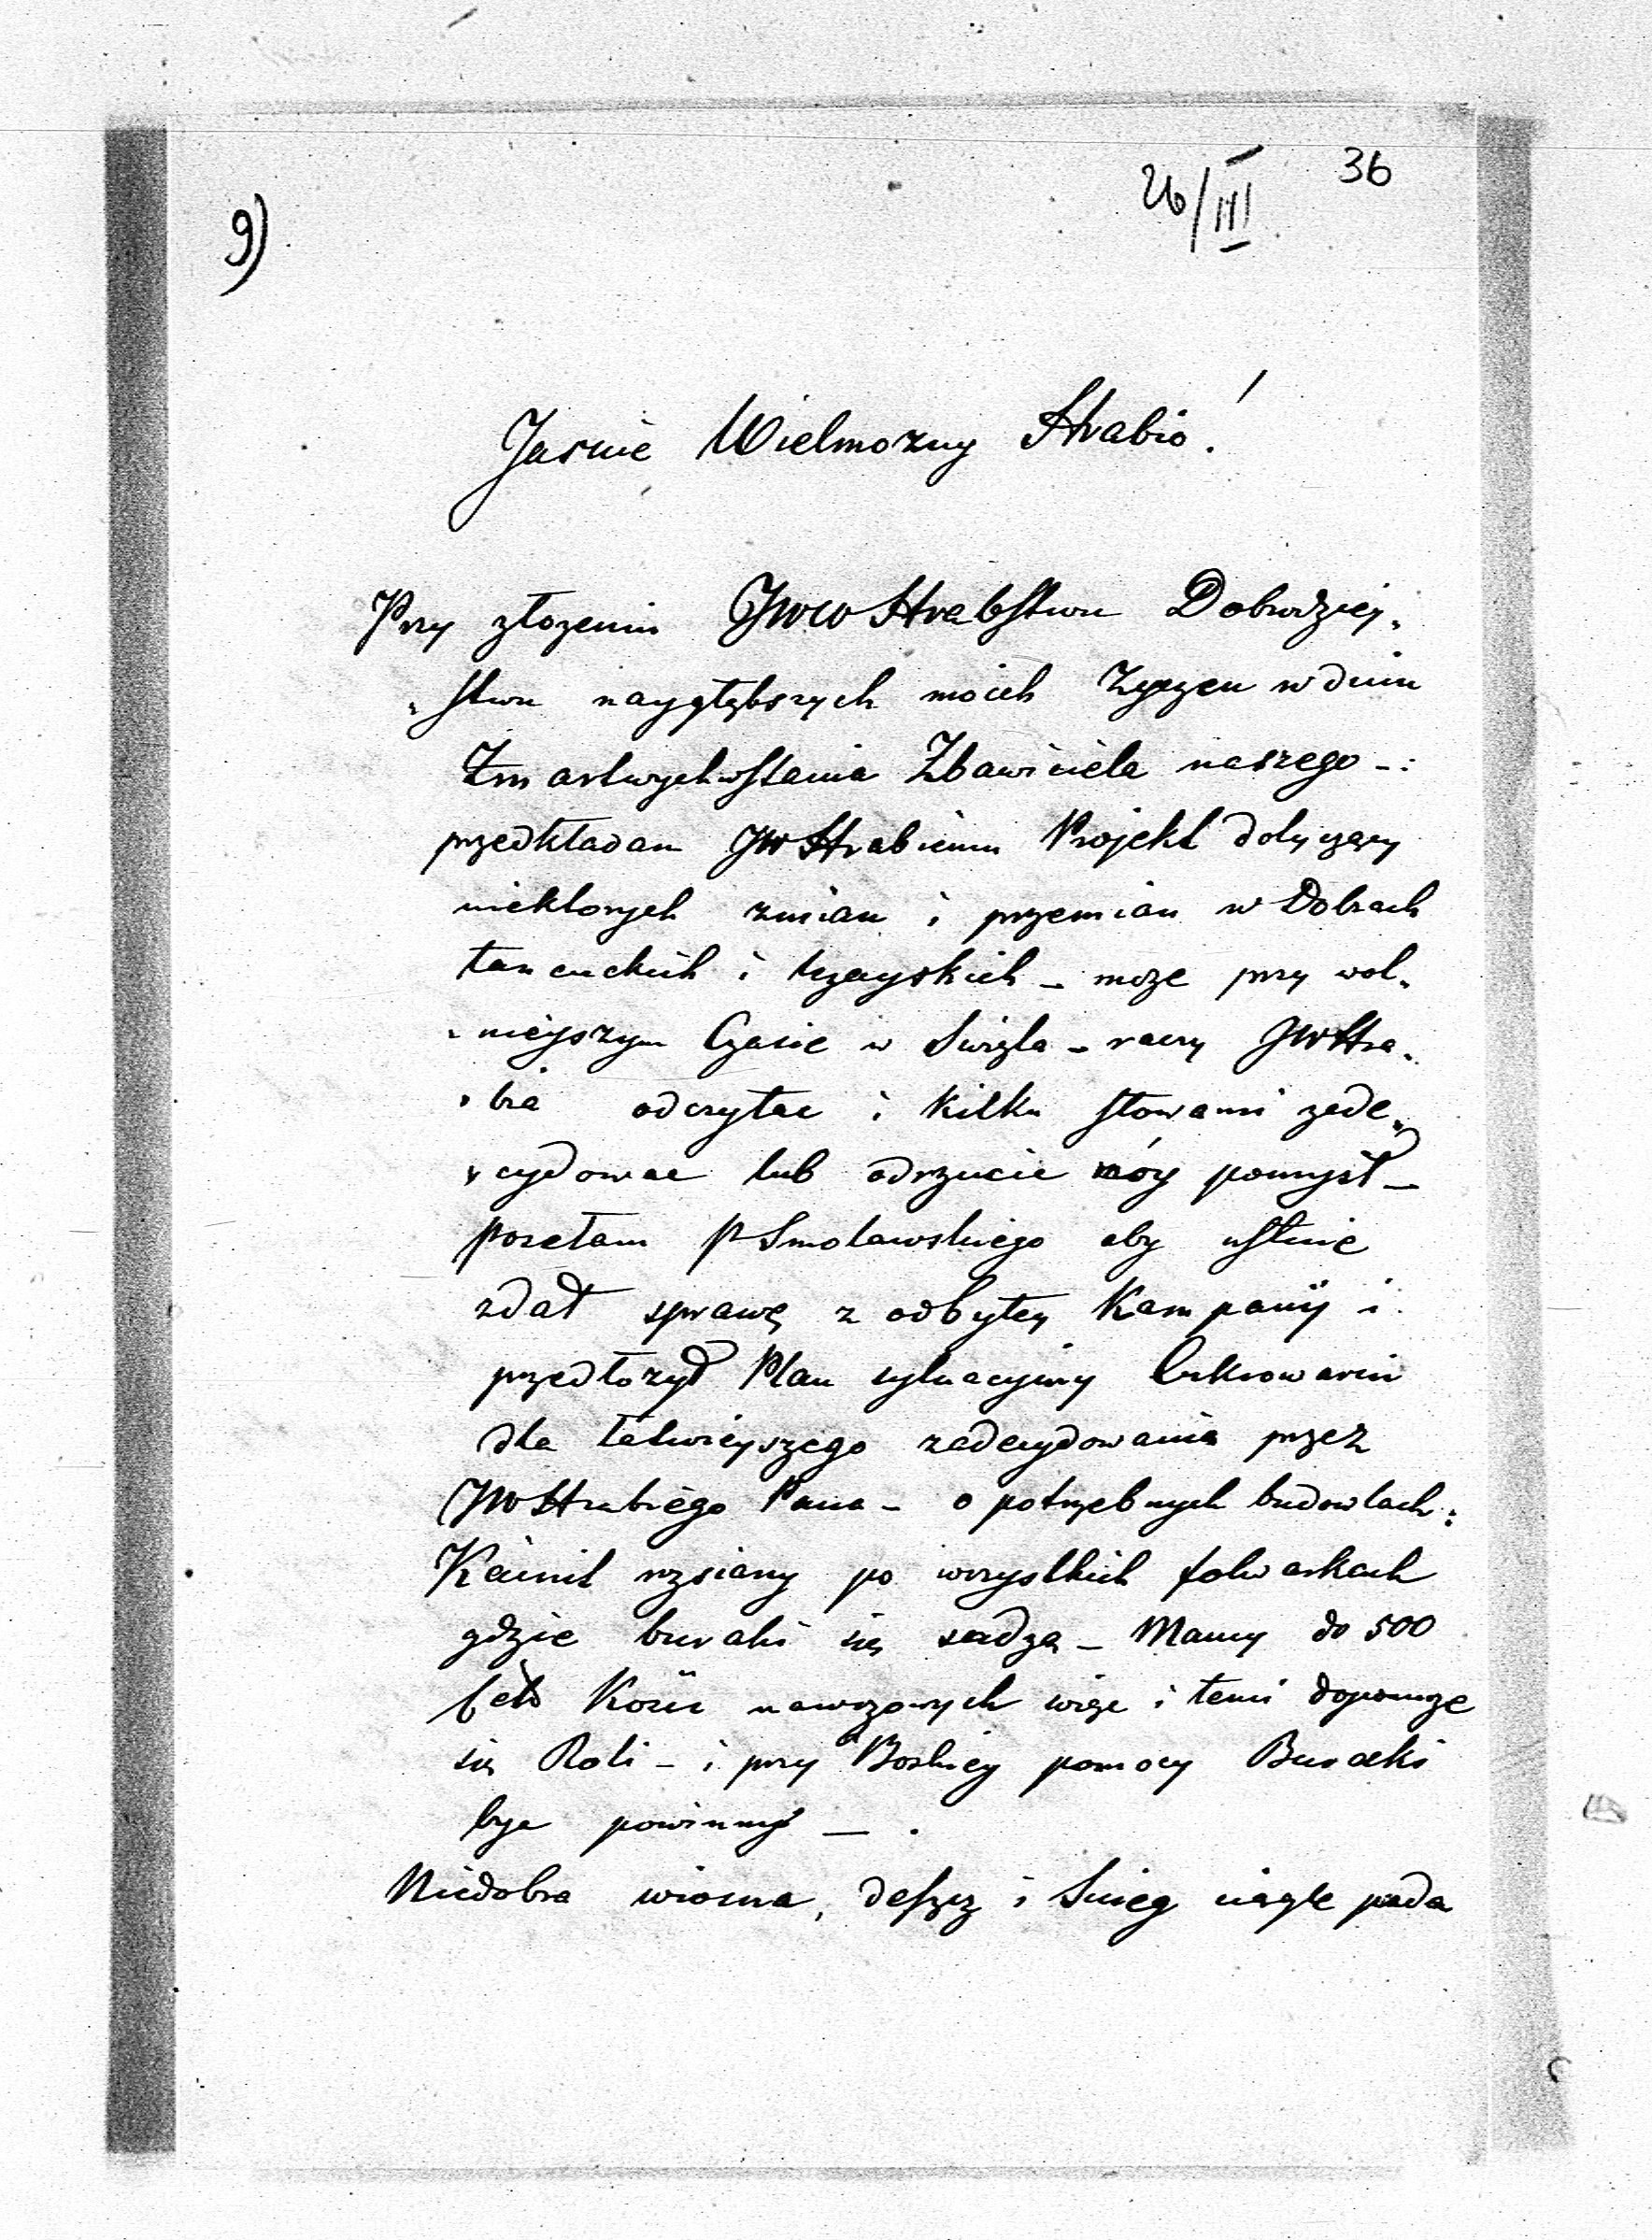 36
26/III
9)
Jasnie Wielmozny Hrabio!
Przy złozeniu JWW Hrabstwu Dobrodziej„
„stwu naygłębszych moich Zyczen w dniu
Zmartwychwstania Zbawiciela naszego -:
przedkładam JWHrabiemu Projekt dotyczący
niektorych zmian i przemian w Dobrach
łancuckich i lezayskich - moze przy wol„
„nieyszym Czasie w Swięta - raczy JWHra„
„bia odczytac i kilku słowami zade„
„cydowac lub odrzucic móy pomysł -
posełam P Smolawskiego aby ustnie
zdał sprawę z odbytey Kampanij i
przedłozył Plan sytuacyiny Cukrowarni
dla łatwieyszego zadecydowania przez
JWHrabiego Pana - o potrzebnych budowlach:
Kainit rozsiany po wszystkich folwarkach
gdzie buraki się sadzą - Mamy do 500
Kosci nawozowych więc i temi dopomoze
się Roli - i przy Boskiey pomocy Buraki
byc powinny - .
Niedobra wiosna, deszcz i Snieg ciągle pada